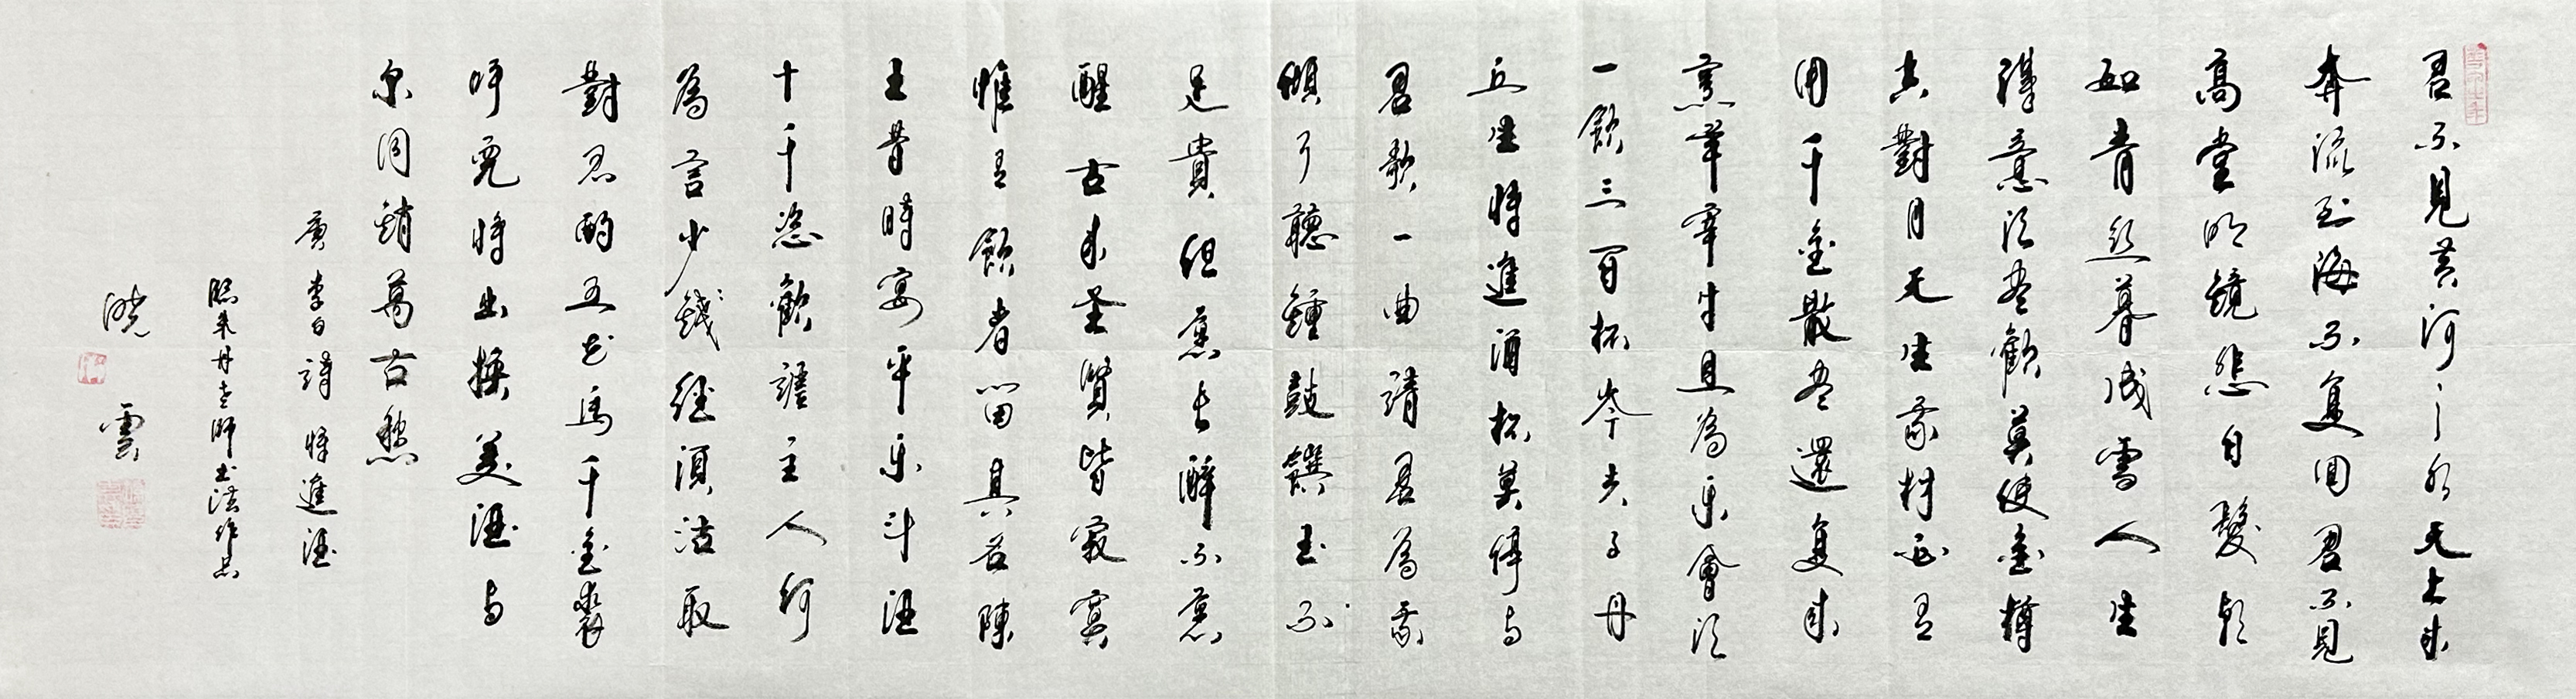 君不見黃河之水天上来
奔流到海不复回君不見
高堂明镜悲白髮朝
如青丝暮成雪人生
得意须尽歡莫使金樽
空對月天生我材必有
用千金散尽還复来
烹羊宰牛且為乐會须
一飲三百杯岑夫子丹
丘生將進酒杯莫停与
君歌一曲請君為我
傾耳聽鍾鼓饌玉不
足貴但愿长醉不愿
醒古来圣賢皆寂寞
惟有飲者留其名陳
王昔時宴平乐斗酒
十千恣歡謔主人何
為言少錢径須沽取
對君酌五花馬千金裘
呼児將出换美酒与
尔同銷萬古愁
唐李白詩將進酒
临朱丹老師书法作品
晓雲